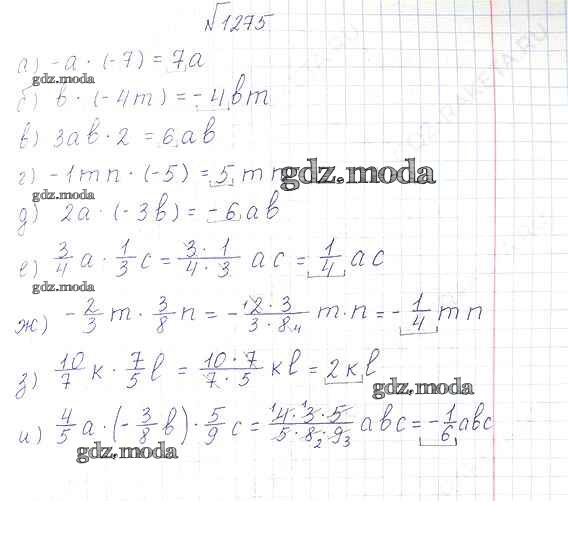 №1275
а) -a · (-7) = 7a
gdz.moda
б) b · (-4m) = -4bm
в) 3ab · 2 = 6ab
г) -1mn · (-5) = 5mn
gdz.moda
gdz.moda
д) 2a · (-3b) = -6ab
е) 3/4 a · 1/3 c = 3·1/4·3 ac = 1/4 ac
gdz.moda
ж) -2/3 m · 3/8 n = -2·3/3·8 m·n = -1/4 mn
з) 10/7 k · 7/5 l = 10·7/7·5 kl = 2kl
gdz.moda
и) 4/5 a · (-3/8 b) · 5/9 c = 4·3·5/5·8·9 abc = -1/6 abc
gdz.moda